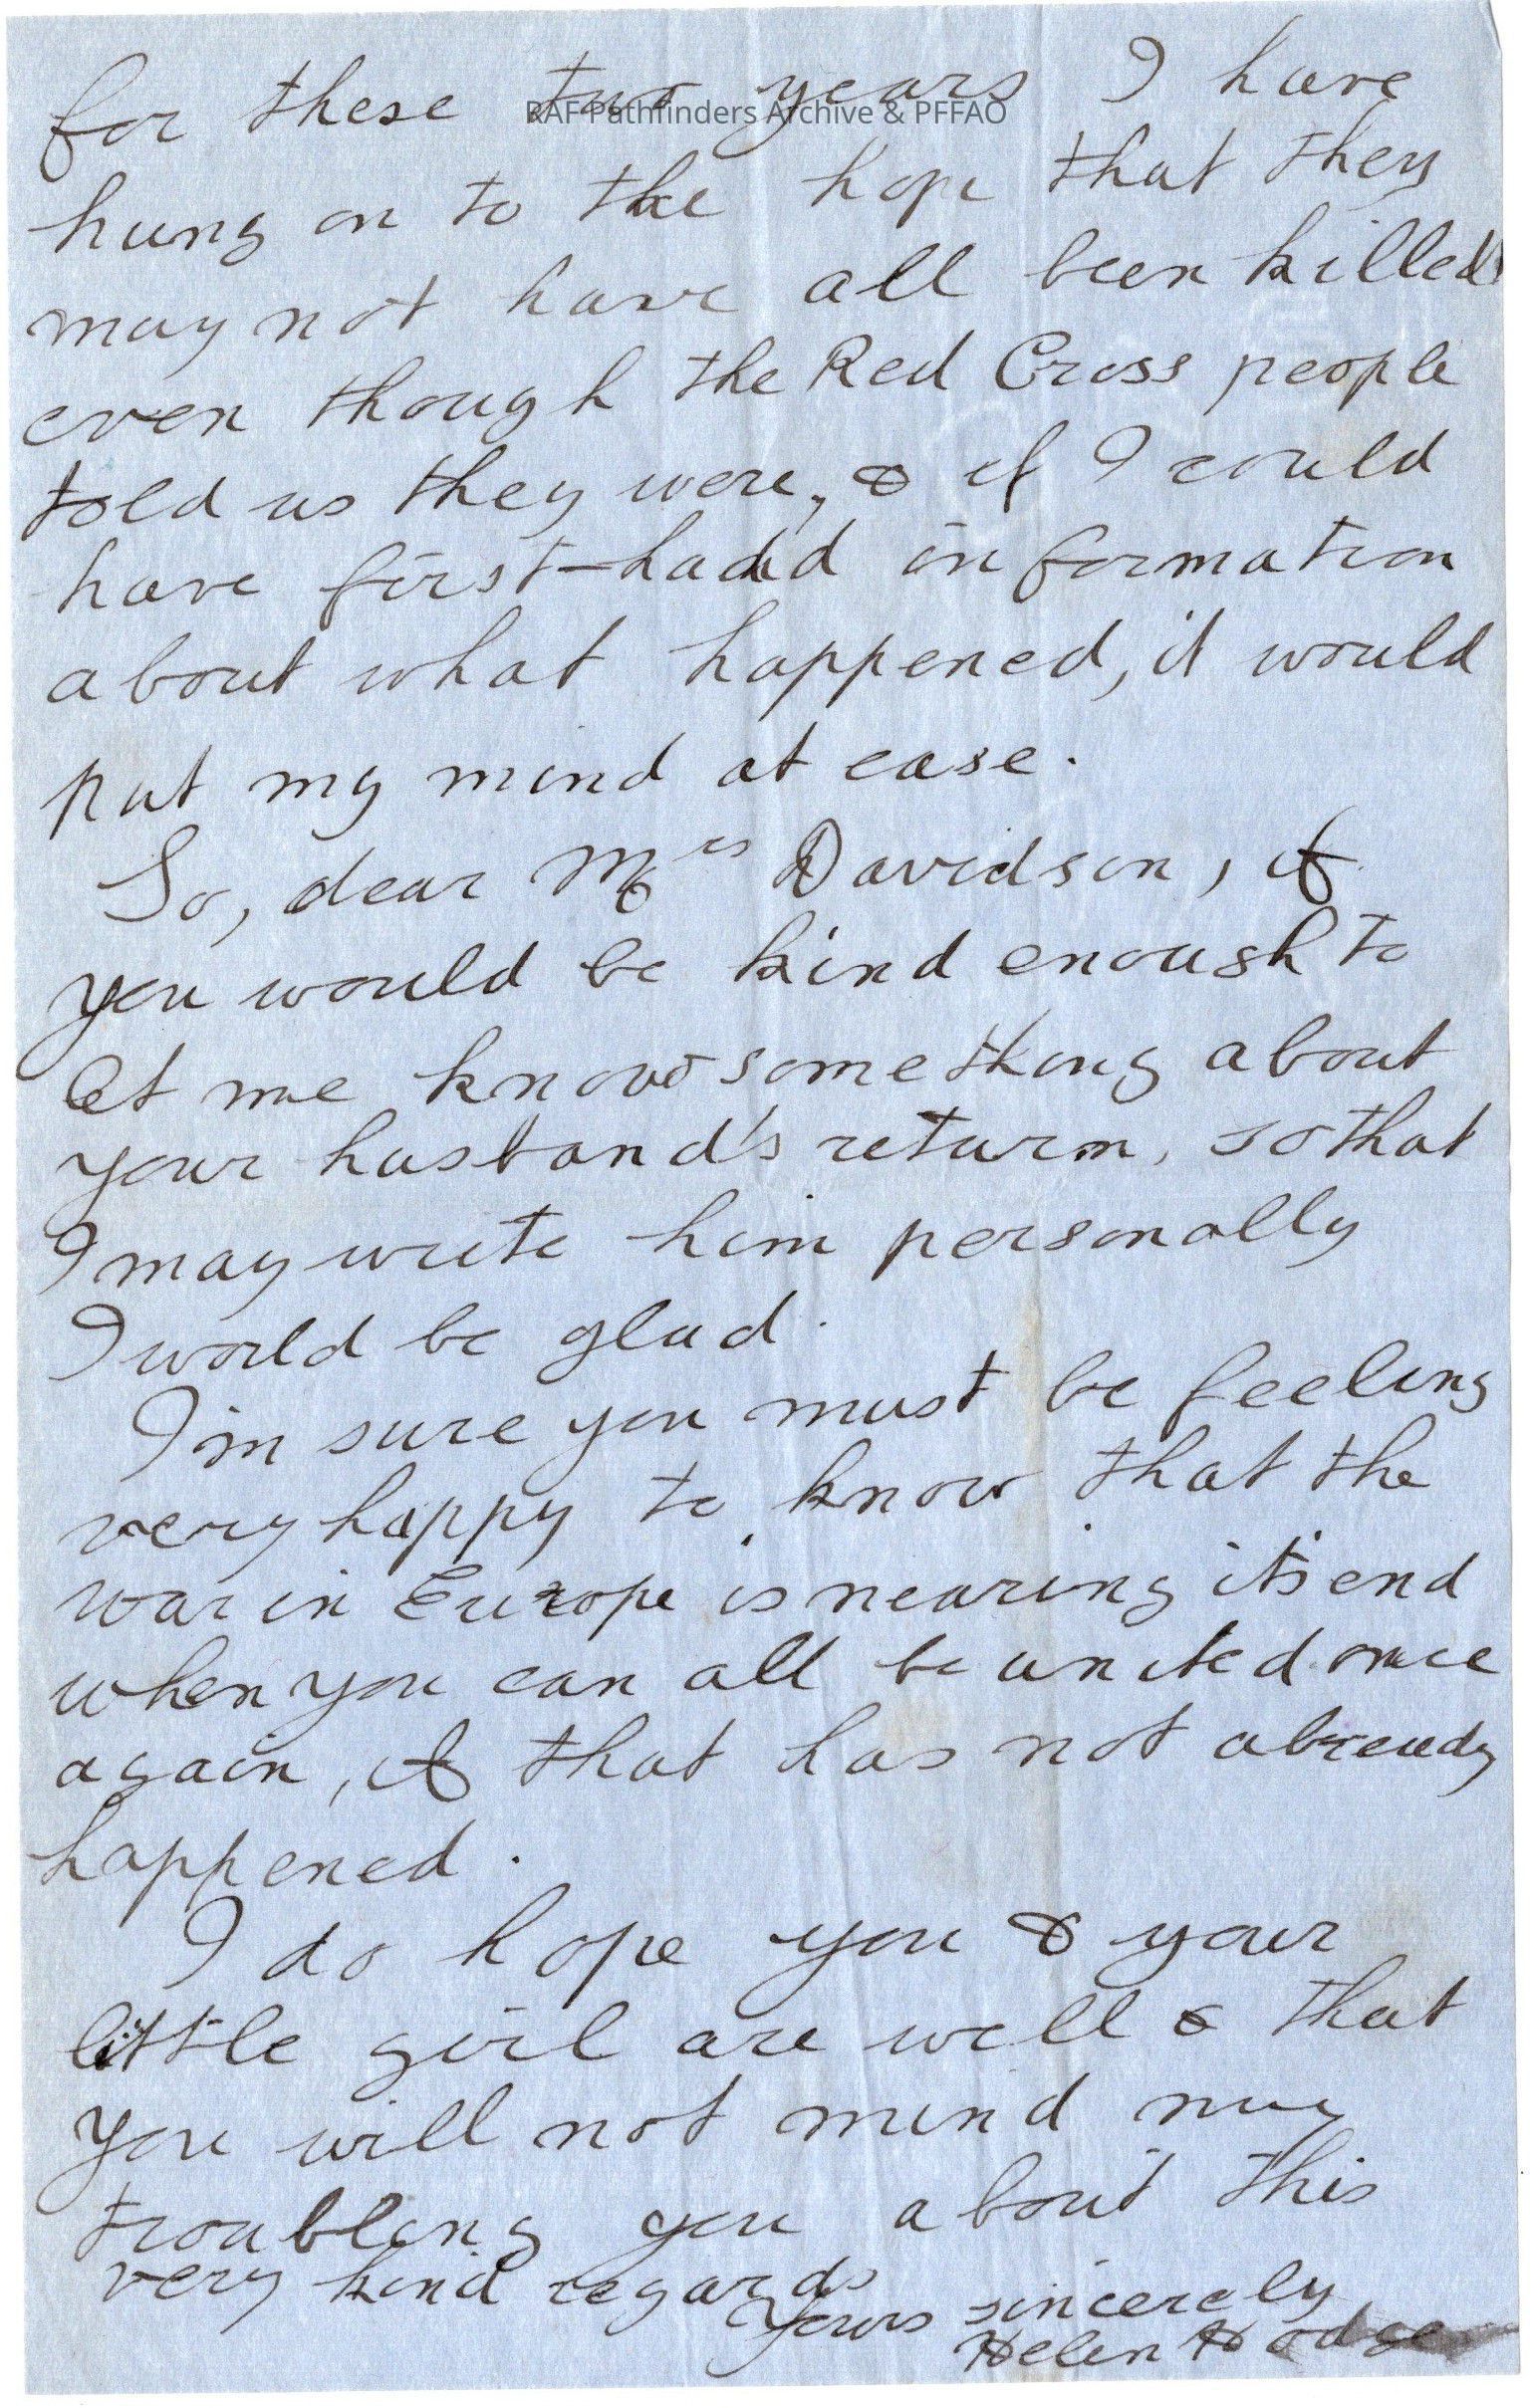 for these two years I have
RAF Pathfinders Archive & PFFAO
hung on to the hope that they
may not have all been killed
even though the Red Cross people
told us they were, & if I could
have first-hand information
about what happened, it would
put my mind at ease.
So, dear Mrs Davidson, if
you would be kind enough to
let me know something about
your husband's return, so that
I may write him personally
I would be glad.
I'm sure you must be feeling
very happy to know that the
war in Europe is nearing it's end
when you can all be united once
again, if that has not already
happened.
I do hope you & your
little girl are well & that
you will not mind my
troubling you about this
very kind regards
Yours sincerely
Helen Hodge